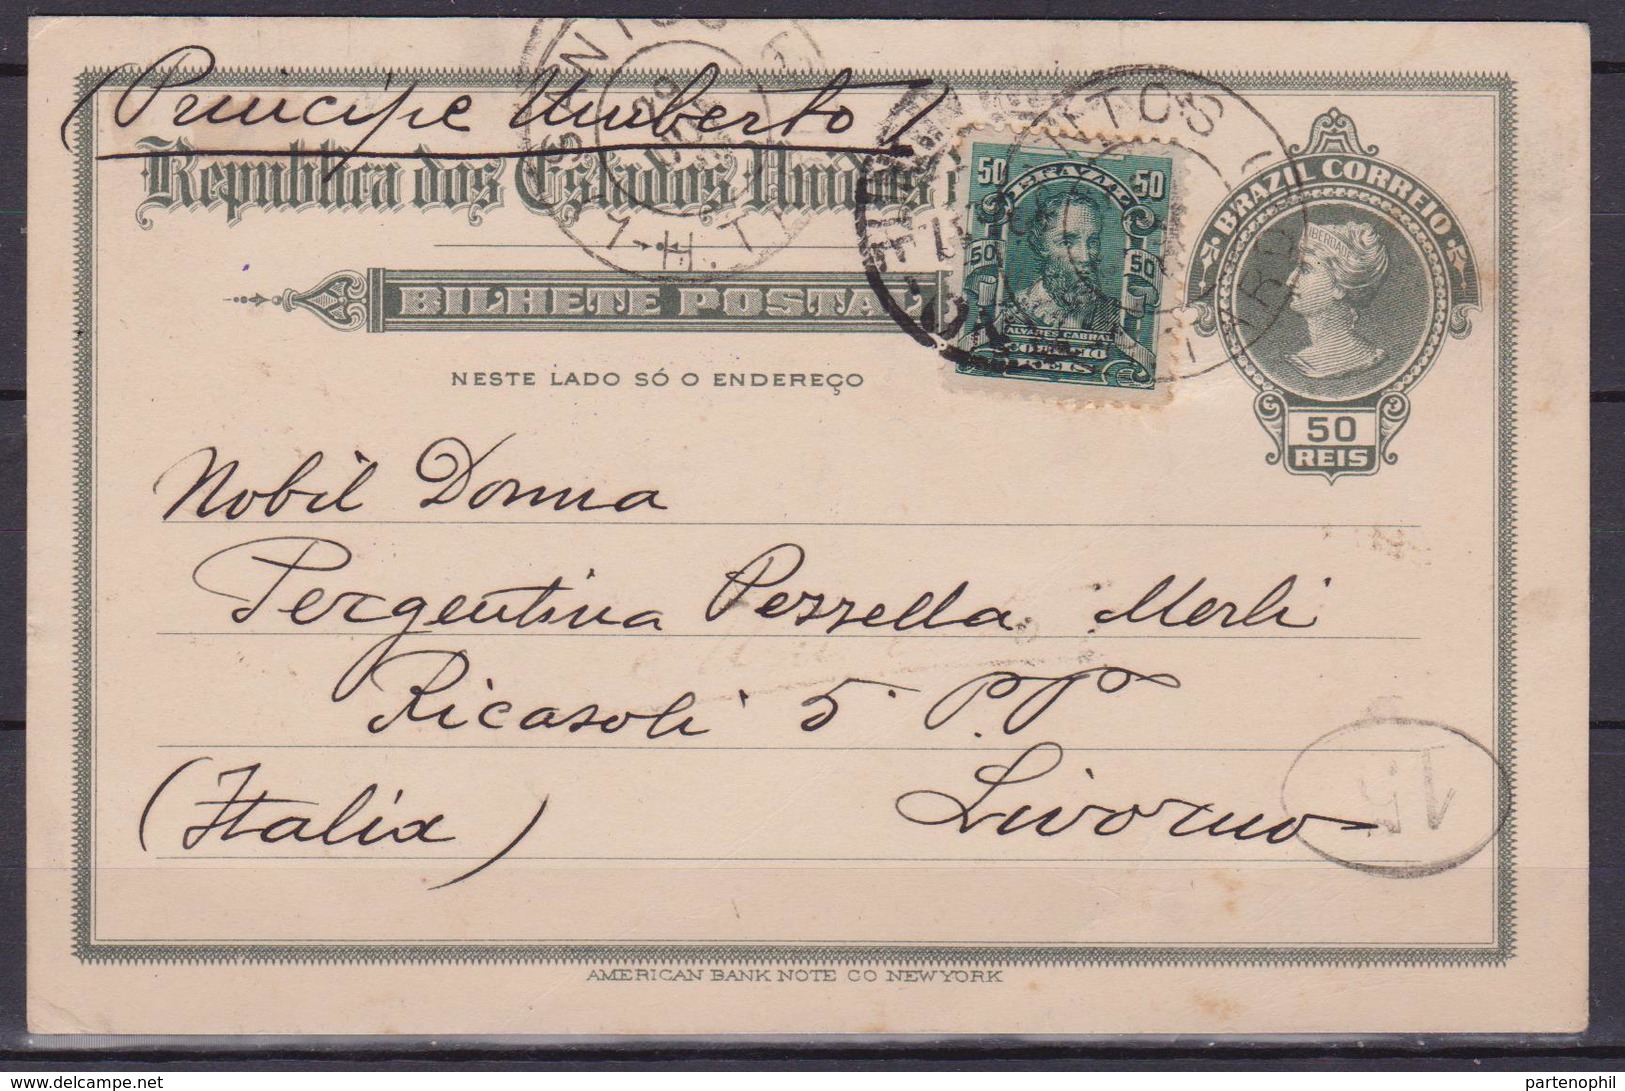 (Principe Umberto)
Republica dos Estados Unidos
BILHETE POSTAL
NESTE LADO SÓ O ENDEREÇO
50 BRAZIL 50
50 50
ALVARES CABRAL
CORREIO
REIS
BRAZIL CORREIO
LIBERDADE
50
REIS
SANTOS
Nobil Donna
Pergentina Pezzella Merli
Ricasoli 5 P.P.
(Italia) Livorno
15
AMERICAN BANK NOTE CO NEW YORK
delcampe.net
partenophil